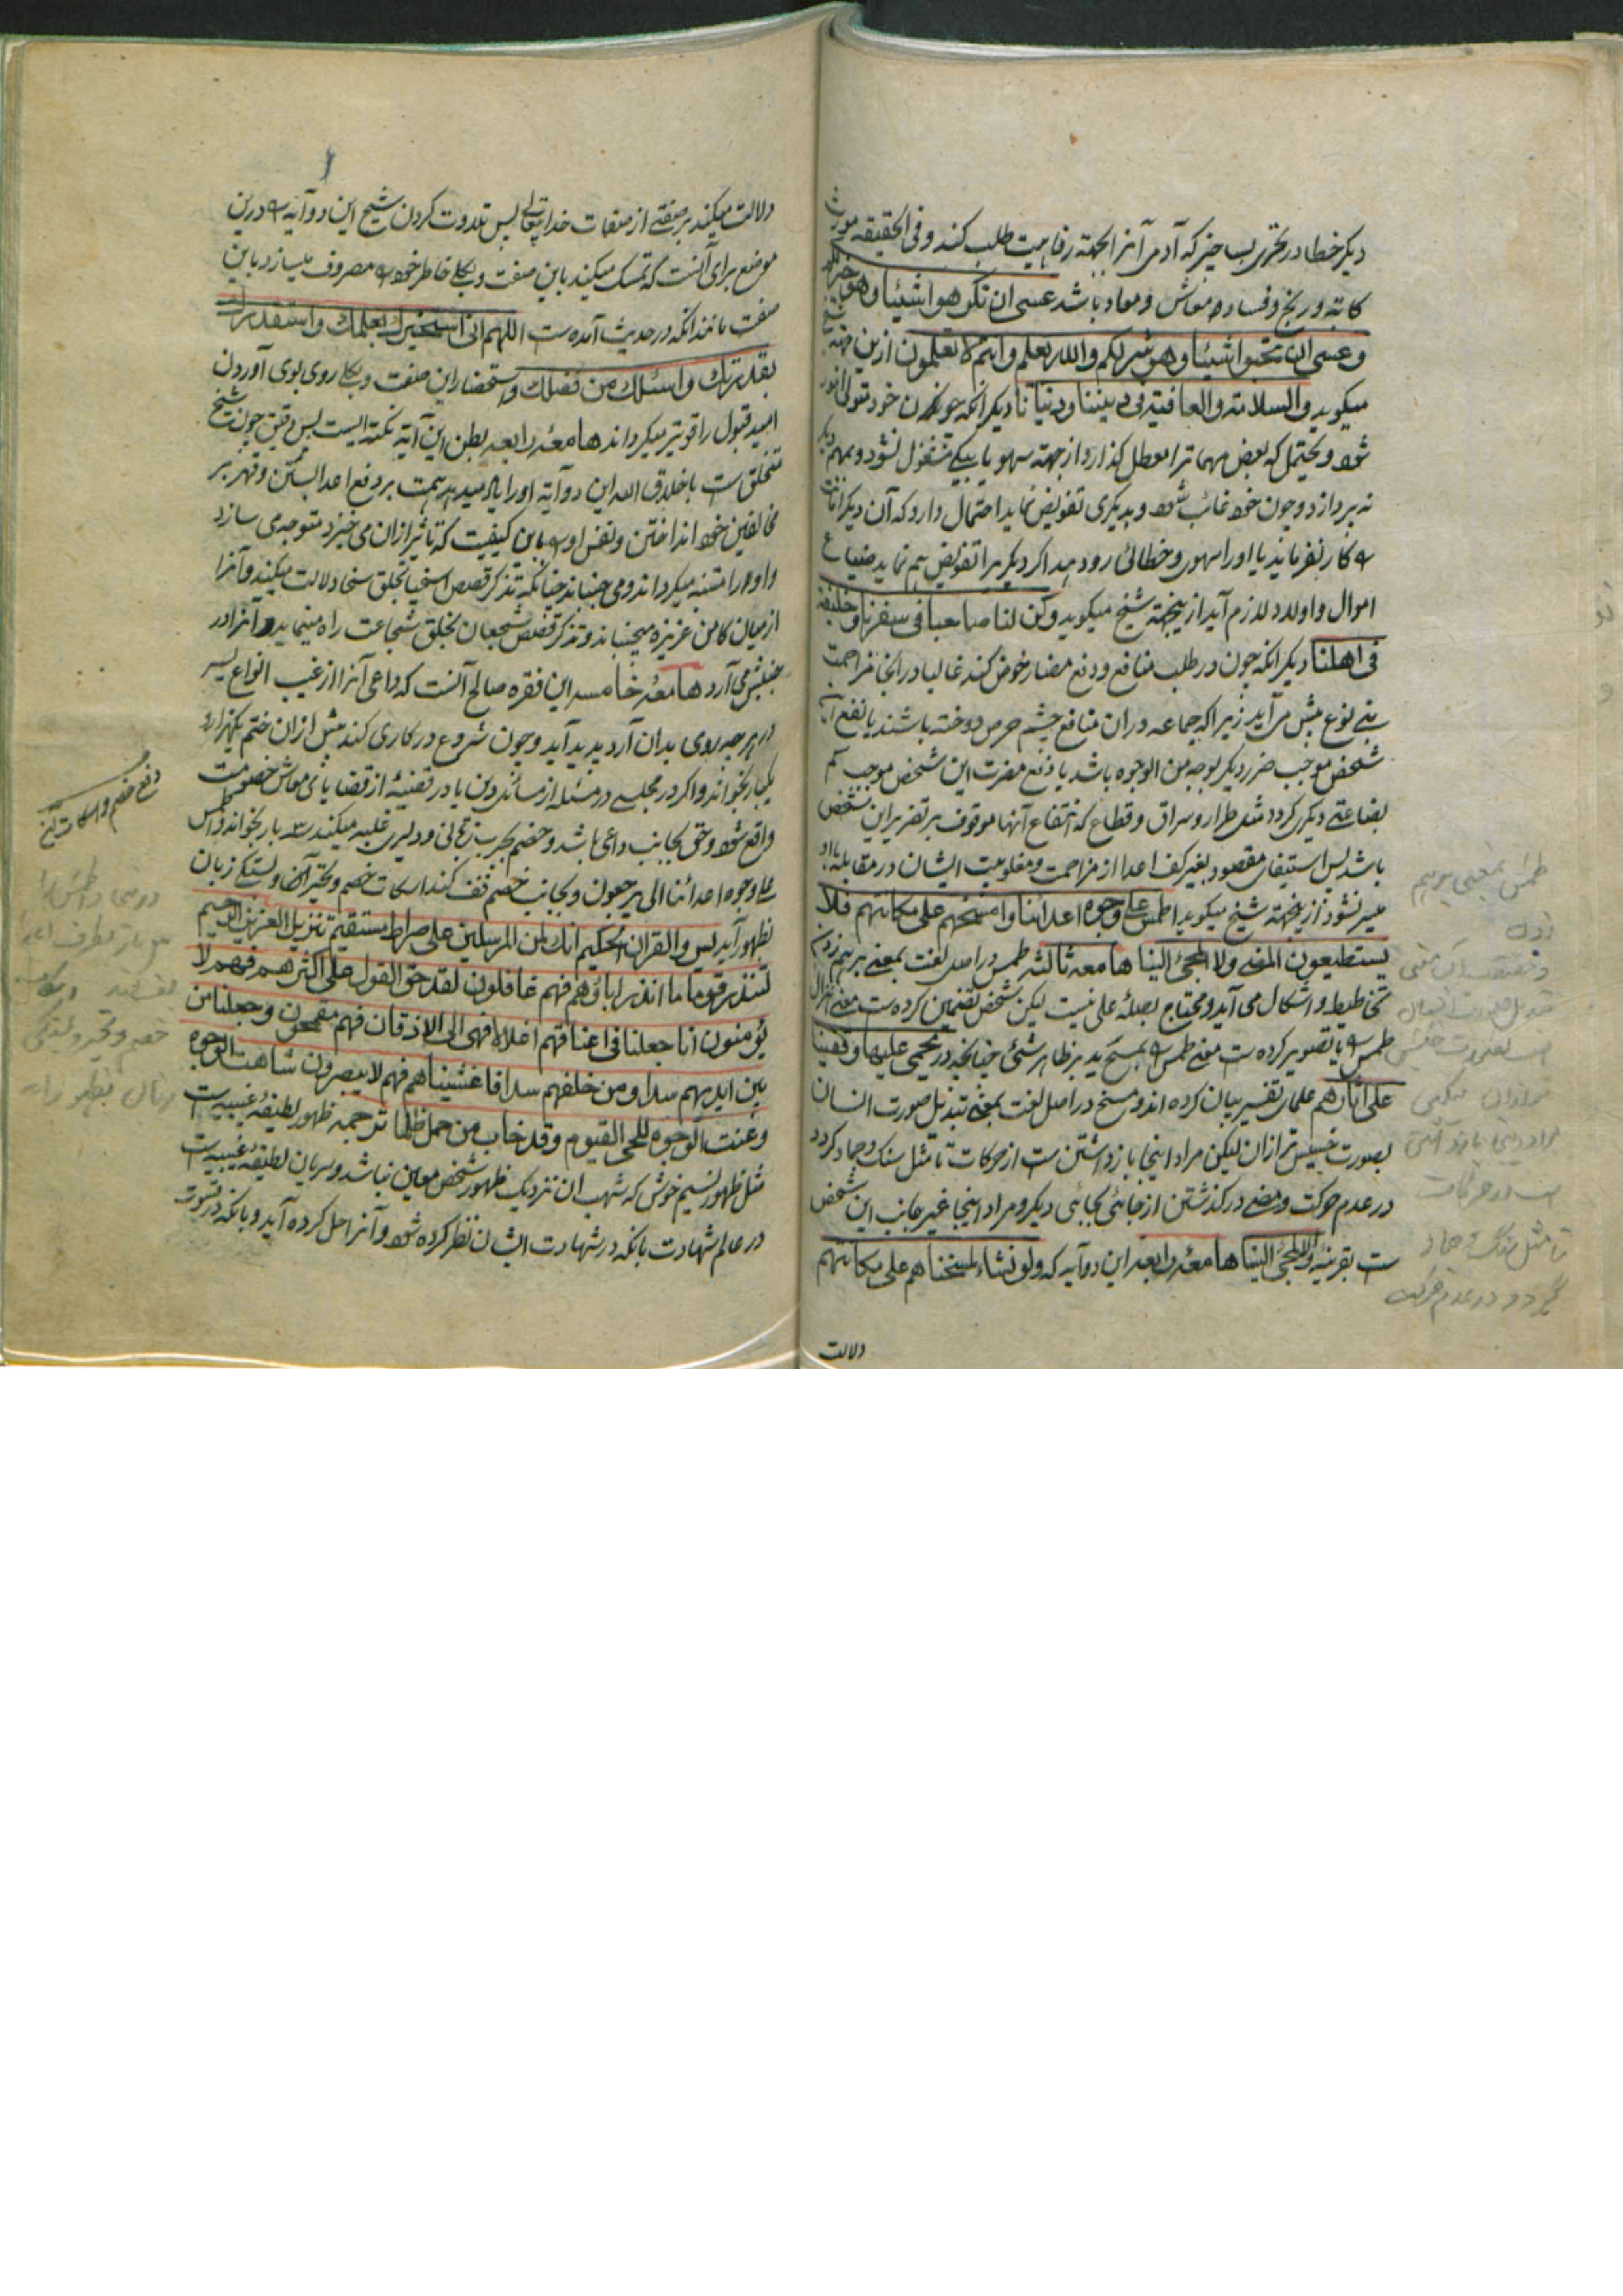 دیکر خطا در تحری بسا چیز که آدمی آنرا بجهته رفاهیت طلب کند و فی الحقیقه مورث
کانه و رنج و فساد معاش و معاد باشد عسی ان تکرهوا شیئا و هو خیر لکم
و عسی ان تحبوا شیئا و هو شر لکم و الله یعلم و انتم لا تعلمون ازین جهته شیخ
میکوید و السلامة و العافیة فی دیننا و دنیانا دیکر آنکه چون خود متولی امور
شود و یحتمل که بعض مهمات را معطل کذارد از جهته سهو یا بیکی مشغول نشود و بمهم دیکر
نه پردازد و چون خود غائب شود و بدیکری تفویض نماید احتمال دارد که آن دیکر
کار نفرماید یا او را سهوی و خطائی رو دهد اکر دیکری را تفویض هم نماید ضیاع
اموال و اولاد لازم آید ازینجهته شیخ میکوید و کن لنا صاحبا فی سفرنا و خلیفة
فی اهلنا دیکر آنکه چون در طلب منافع و دفع مضار خوض کند غالبا در آنجا مزاحمت
بنی نوع پیش می آید زیرا که جماعه در آن منافع چشم حرص دوخته باشند یا نفع این
شخص موجب ضرر دیکر بوجه من الوجوه باشد یا دفع مضرت این شخص موجب کم
بضاعتی دیکری کردد مثل طرار و سراق و قطاع که انتفاع آنها موقوف بر تضرر این شخص
باشد پس استیفای مقصود بغیر کف اعدا از مزاحمت و مغلوبیت ایشان در مقابله او
میسر نشود ازینجهته شیخ میکوید اطمس علی وجوه اعدائنا و امسخهم علی مکانتهم فلا
یستطیعون المضی و لا المجئ الینا هامعه ثالثه طمس در اصل لغت بمعنی برهم زدن
تخاطیط و اشکال می آید و محتاج بصله علی نیست لیکن شخص تضمین کرده ست معنی انزال
طمس را یا تصویر کرده ست معنی طمس را بمسح ید بر ظاهر شئی چنانچه در یحمی علیها و قفینا
علی آثارهم علمای تفسیر بیان کرده اند و مسخ در اصل لغت بمعنی تبدیل صورت انسان
بصورت خسیس تر از آن لیکن مراد اینجا باز داشتن ست از حرکات تا مثل سنک و جماد کردد
در عدم حرکت و مضی در کذشتن از جائی بجائی دیکر و مراد اینجا غیر جانب این شخص
ست بقرینه و لا المجئ الینا هامعه رابعه این دو آیه که و لو نشاء لمسخناهم علی مکانتهم
دلالت
طمس بمعنی برهم
زدن
تا مثل سنگ و جماد
گردد در عدم حرکت
دلالت میکند بر صفتی از صفات خدایتعالی پس تلاوت کردن شیخ این دو آیه را درین
موضع برای آنست که تمسک میکند باین صفت و بکلی خاطر خود را مصروف میسازد باین
صفت مانند آنکه در حدیث آمده ست اللهم انی استخیرک بعلمک و استقدرک
بقدرتک و اسئلک من فضلک و استحضار این صفت و بکلی روی بوی آوردن
امید قبول را قویتر میکرداند هامعه رابعه بطن این آیه نکته ایست بس دقیق چون شیخ
متخلق ست باخلاق الله این دو آیه او را یاد میدهد همت بر دفع اعدا بستن و قهر بر
مخالفین خود انداختن و نفس او را باین کیفیت که تاثیر ازان می خیزد متوجه می سازد
و او را متنبه میکرداند و می جنباند چنانکه تذکر قصص اسخیا بخلق سخا دلالت میکند و آنرا
از میان کامن غریزه میجنباند و تذکر قصص شجعان بخلق شجاعت راه مینماید و آنرا در
جنبش می آرد هامعه خامسه این فقره صالح آنست که داعی آنرا از غیب انواع یسر
در هر چه روی بدان آرد پدید آید و چون شروع در کاری کند پیش ازان ختم یکهزار
یکبار بخواند و اکر در مجلسی در مسئله از مسائل دین یا در قضیه از قضایای معاش خصومت
واقع شود و حق بجانب داعی باشد و خصم بچرب زبانی و دلیری غلبه میکند سه بار بخواند و اطمس
علی وجوه اعدائنا الی یرجعون و بجانب خصم تف کند اسکات خصم و تحیر آن و بستکی زبان
بظهور آید یس و القرآن الحکیم انک لمن المرسلین علی صراط مستقیم تنزیل العزیز الرحیم
لتنذر قوما ما انذر آباؤهم فهم غافلون لقد حق القول علی اکثرهم فهم لا
یؤمنون انا جعلنا فی اعناقهم اغلالا فهی الی الاذقان فهم مقمحون و جعلنا من
بین ایدیهم سدا و من خلفهم سدا فاغشیناهم فهم لا یبصرون شاهت الوجوه
و عنت الوجوه للحی القیوم و قد خاب من حمل ظلما ترجمه ظهور لطیفه غیبیه ست
مثل ظهور نسیم خوش که مهب آن نزدیک ظهور شخص معین نباشد و سریان لطیفه غیبیه ست
در عالم شهادت بآنکه در شهادت ایشان نظر کرده شود و آنرا حل کرده آید و بآنکه در قوت
دفع خصم و اسکات آن